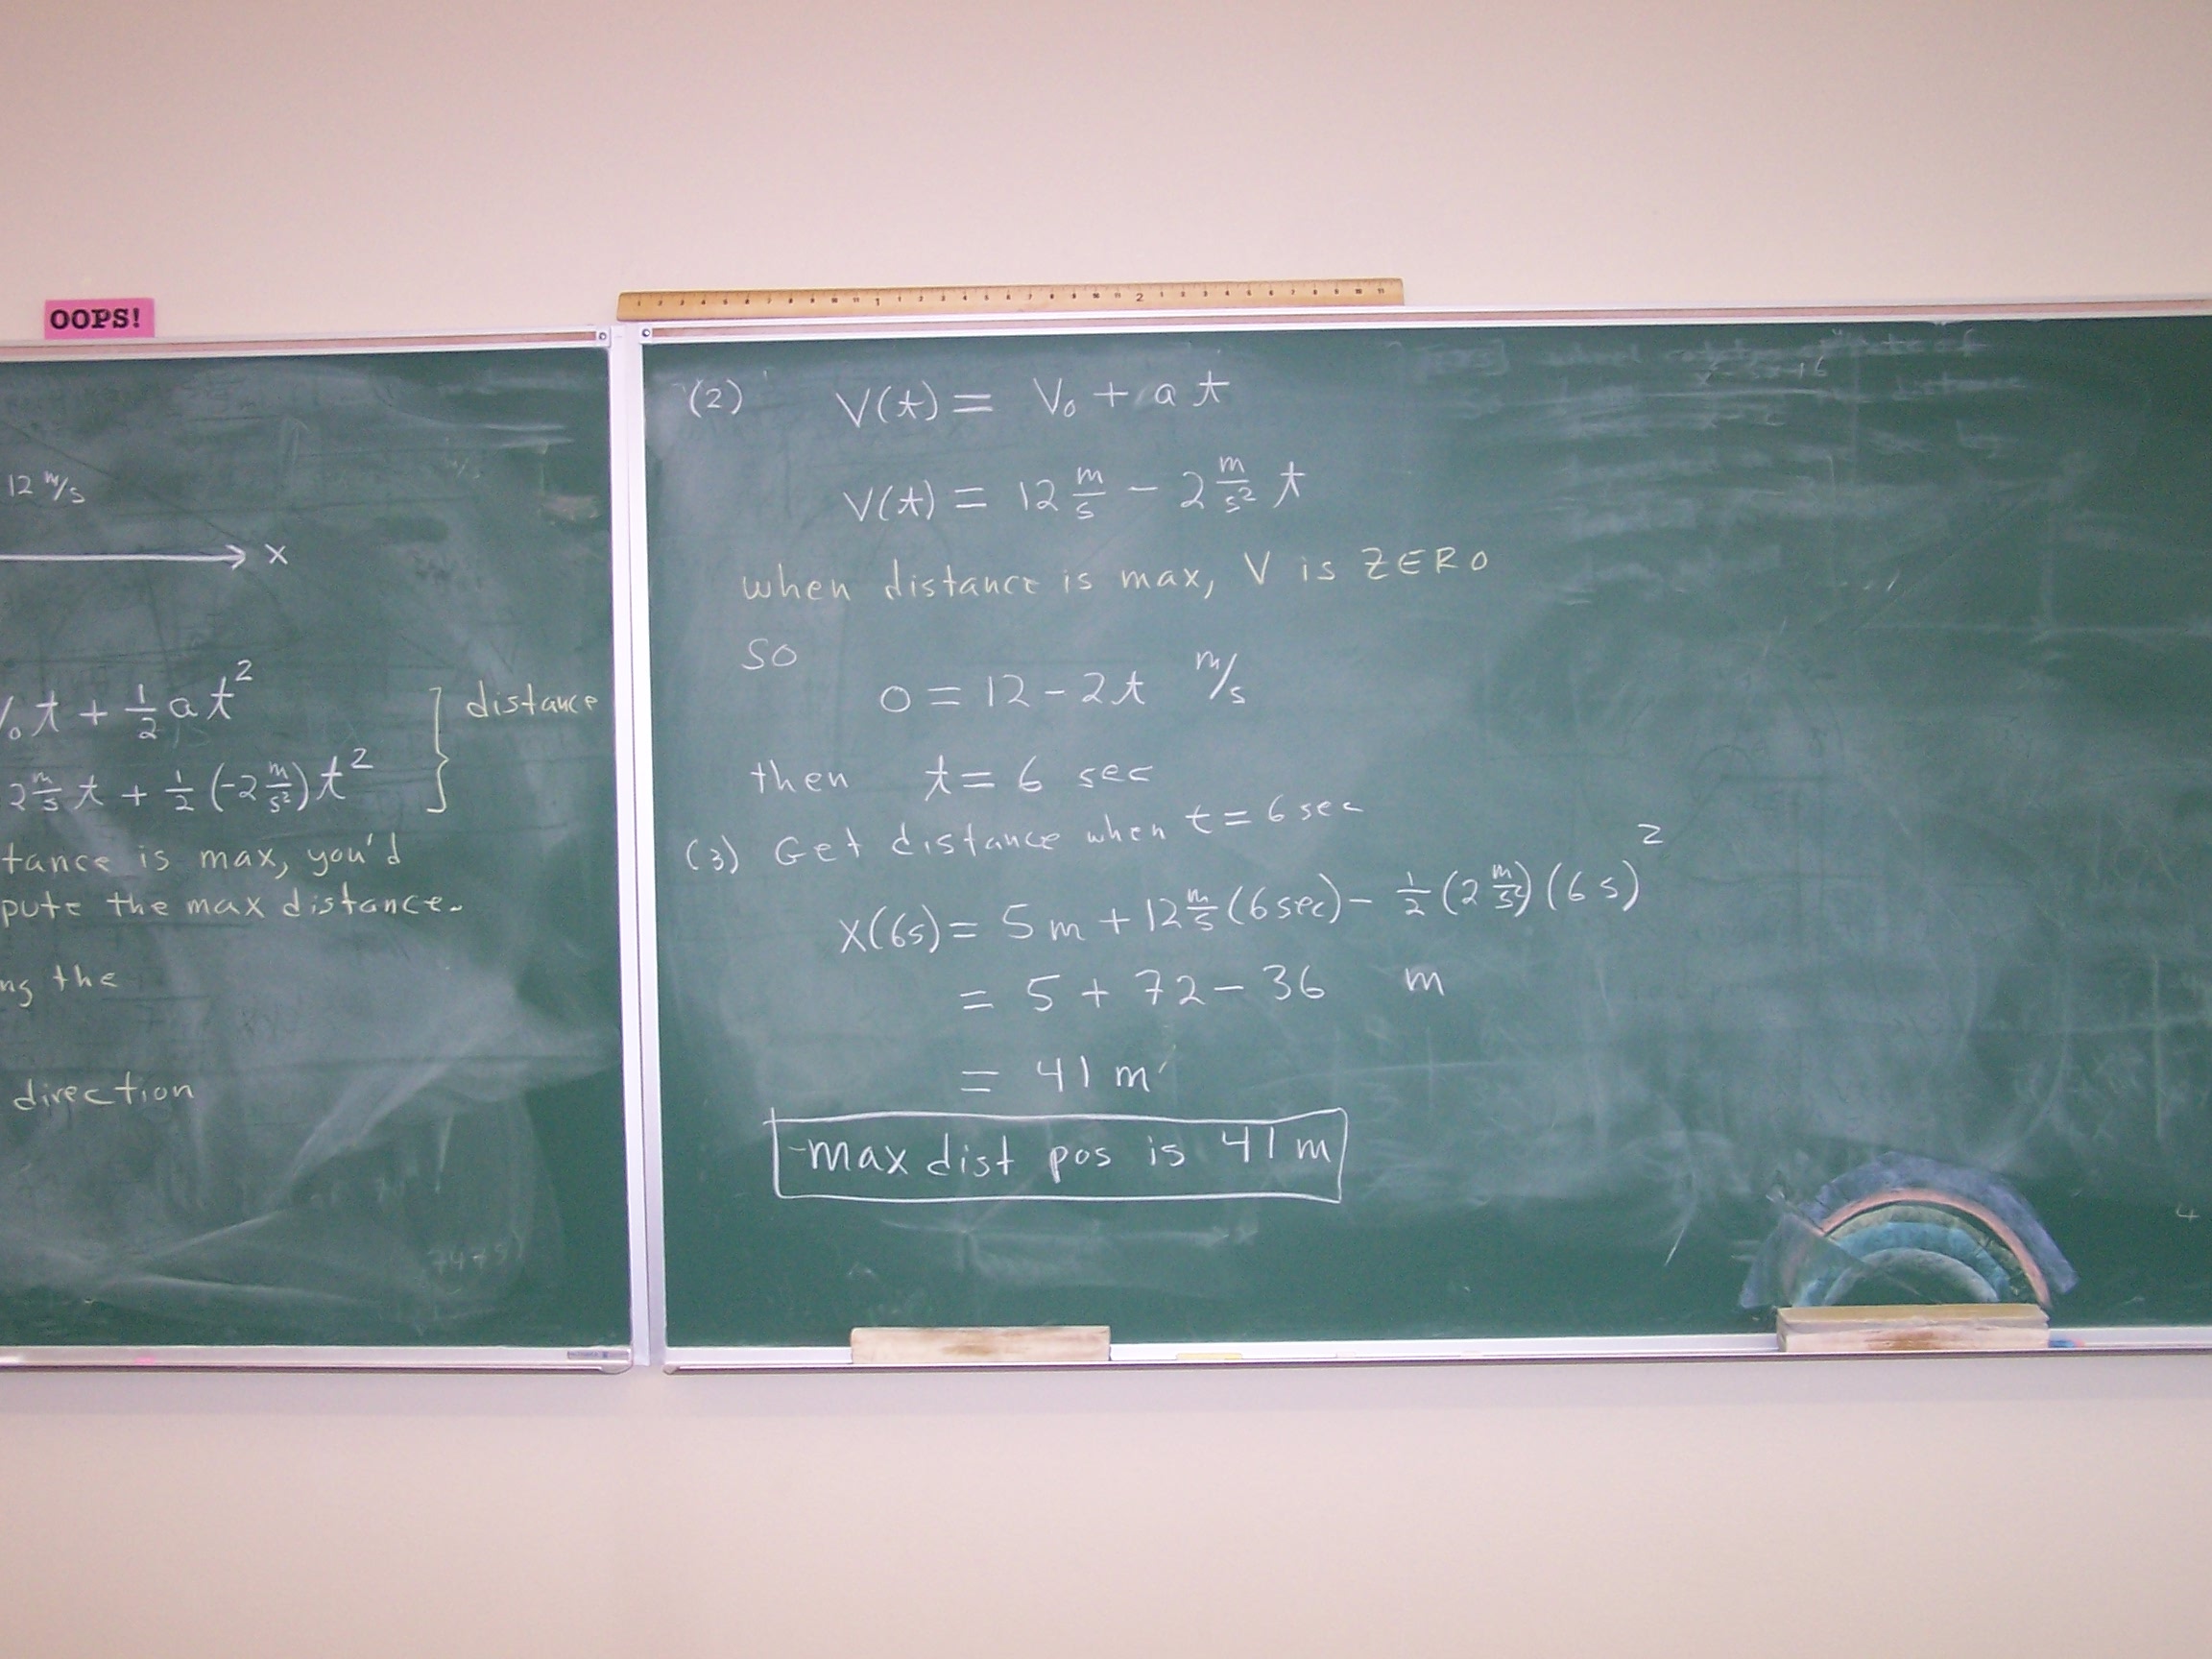 OOPS!
12 m/s
x
V₀t + 1/2 at²
distance
2 m/s t + 1/2 (-2 m/s²) t²
tance is max, you'd
pute the max distance.
ng the
direction
(2) V(t) = V₀ + at
V(t) = 12 m/s - 2 m/s² t
when distance is max, V is ZERO
so
0 = 12 - 2t m/s
then t = 6 sec
(3) Get distance when t = 6 sec
X(6s) = 5m + 12 m/s (6sec) - 1/2 (2 m/s²) (6s)²
= 5 + 72 - 36 m
= 41 m
max dist pos is 41 m
4